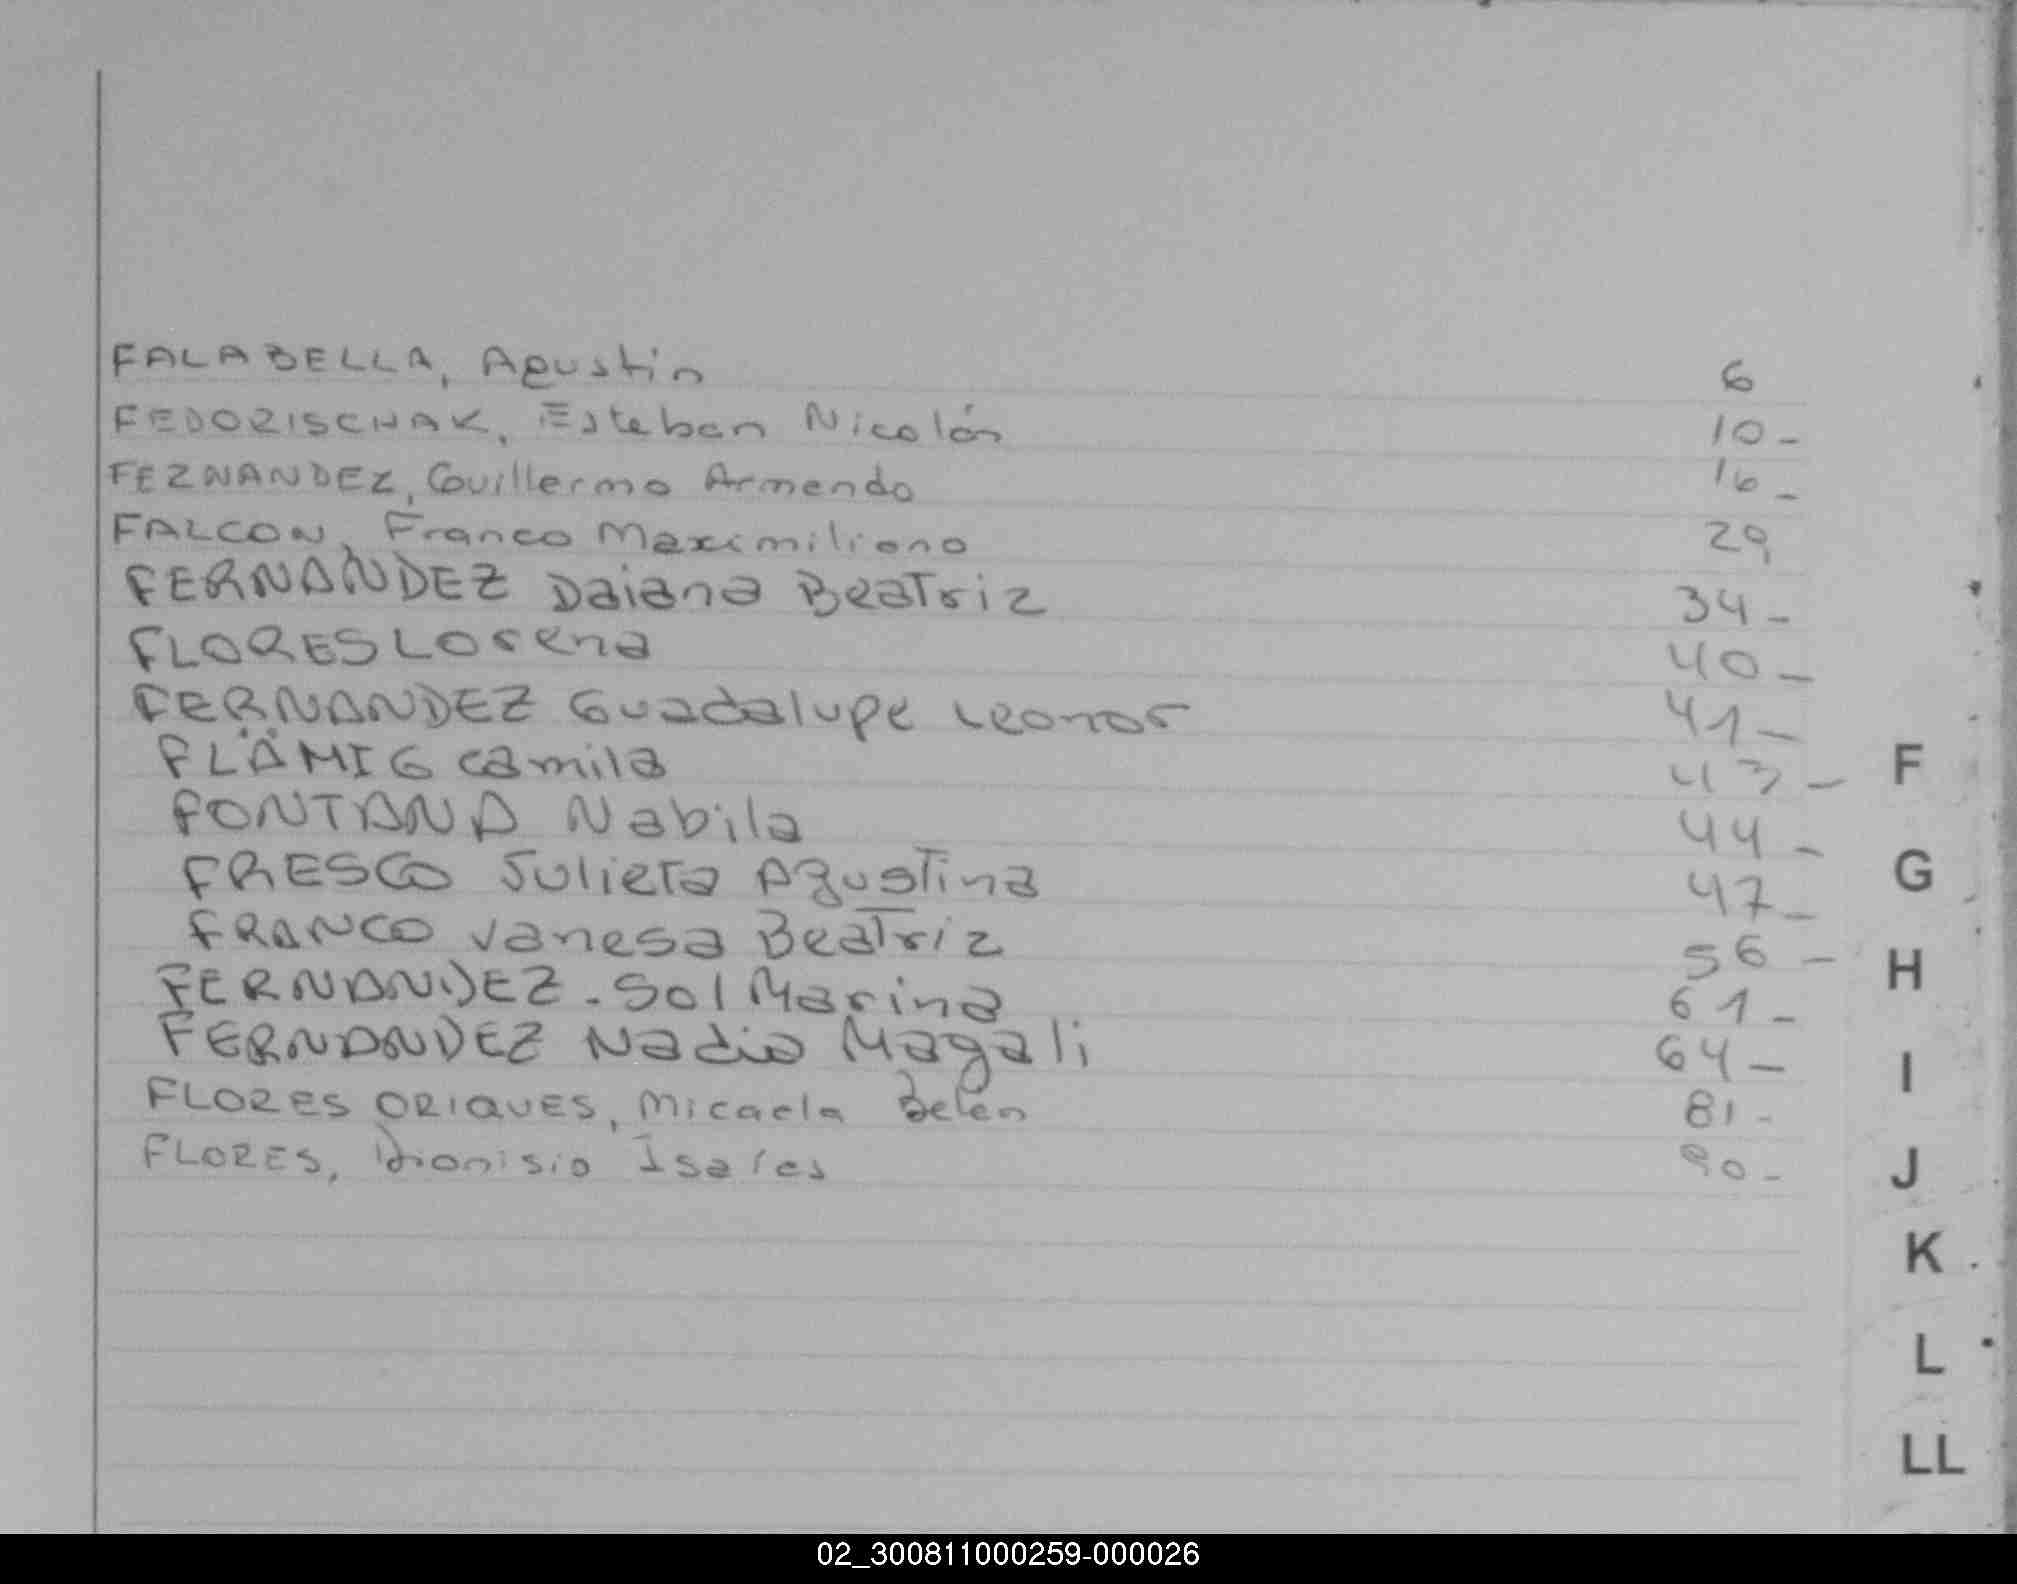 FALABELLA, Agustin 6
FEDORISCHAK, Esteban Nicolás 10-
FERNANDEZ, Guillermo Armando 16-
FALCON, Franco Maximiliano 29
FERNANDEZ Daiana Beatriz 34-
FLORES Lorena 40-
FERNANDEZ Guadalupe Leonor 41-
FLÄMIG Camila 43-
FONTANA Nabila 44-
FRESCO Julieta Agustina 47-
FRANCO Vanesa Beatriz 56-
FERNANDEZ - Sol Marina 61-
FERNANDEZ Nadia Magali 64-
FLORES ORIQUES, Micaela Belén 81-
FLORES, Dionisio 90-
F
G
H
I
J
K
L
LL
02_300811000259-000026